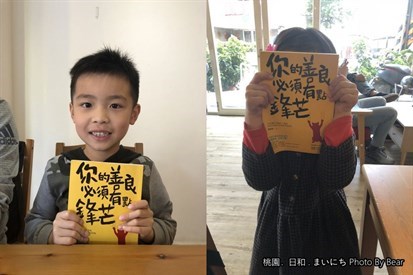 你的善良
必須有點
鋒芒
你的善良
必須有點
鋒芒
桃園．日和．まいにち Photo By Bear